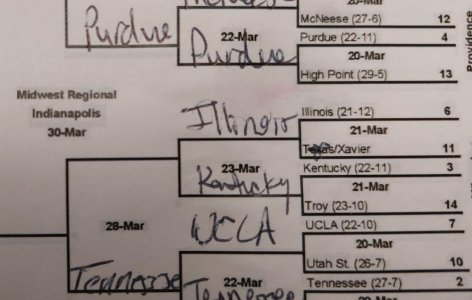 20-Mar
McNeese (27-6) 12
Purdue (22-11) 4
Purdue
22-Mar
Purdue
20-Mar
High Point (29-5) 13
Providence
Midwest Regional
Indianapolis
30-Mar
Illinois
Illinois (21-12) 6
21-Mar
Texas/Xavier 11
23-Mar
Kentucky
Kentucky (22-11) 3
21-Mar
Troy (23-10) 14
28-Mar
UCLA
UCLA (22-10) 7
20-Mar
Utah St. (26-7) 10
Tennessee
22-Mar
Tennessee
Tennessee (27-7) 2
20-Mar